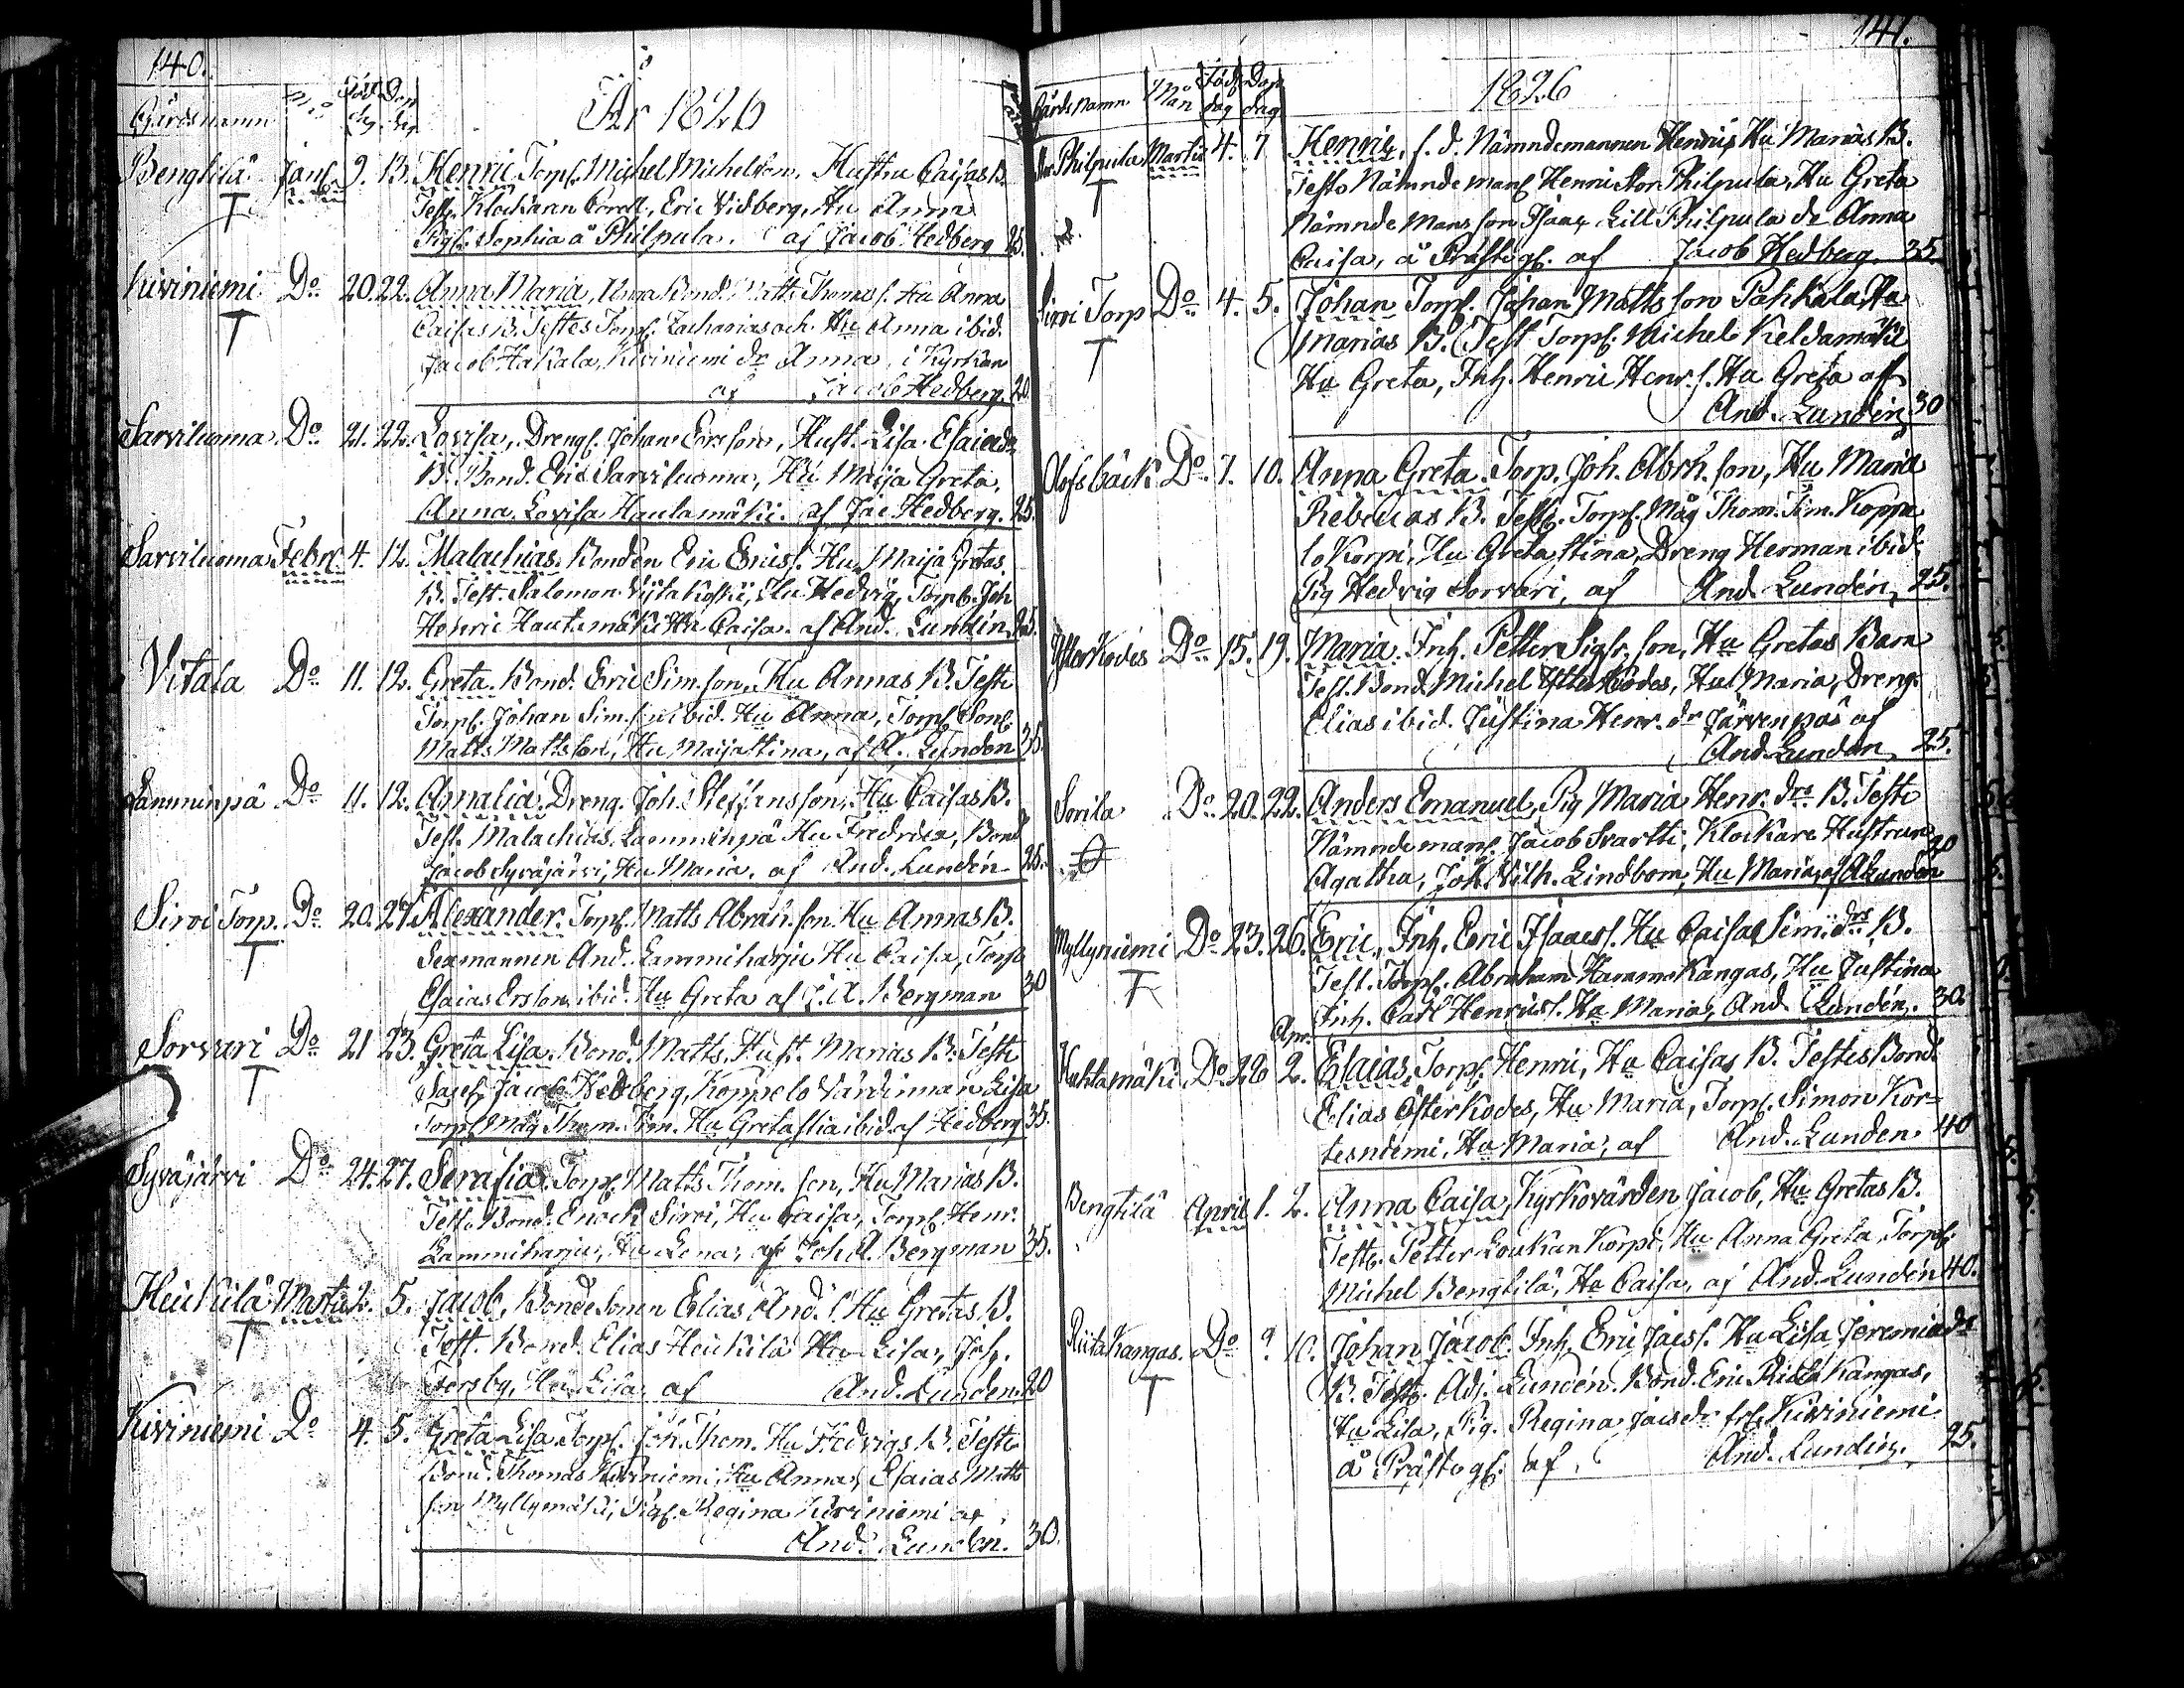 140.
Gårds namn Föd. dag Döp dag År 1826
Bengtilä Jan. 9. 13. Henric Torp. Michel Michelson. Hustru Caisas B.
Test. Klockaren Corell, Eric Vidberg, Hu Anna
Pig. Sophia å Philpula. af Jacob Hedberg 25.
Kiviniemi Do 20. 22. Anna Maria, Unga Bond. Matts Thomas s. Hu Anna
Caisas B. Testes Torp. Zacharias och Hu Anna ibid.
Jacob Hakala, Kiviniemi dr Anna, i Kyrkan
af Jacob Hedberg. 20.
Sarviluoma. Do 21. 22. Lovisa, Dreng. Johan Ersson, Hust. Lisa Esaiædr
B. Bond. Eric Sarviluoma, Hu Maija Greta,
Anna Lovisa Hautamäki. af Jac Hedberg. 25.
Sarviluoma Febr. 4. 12. Malachias. Bonden Eric Erics s. Hu Maija Gretas
B. Test. Salomon Viitakoski, Hu Hedvig, Torp. Joh
Henric Hautamäki Hu Caisa. af And. Lundén 25.
Vitala Do 11. 12. Greta. Bond. Eric Sim. son, Hu Annas B. Teste
Torp. Johan Sim. son ibid. Hu Anna, Torp. Son.
Matts Mattsson, Hu Maijastina, af A. Lunden 35.
Lamminpä Do 11. 12. Amalia. Dreng. Joh. Steffansson, Hu Caisas B.
Test. Malachias Lamminpä Hu Fredrica, Bond
Jacob Syväjärvi, Hu Maria. af And. Lundén 25.
Sirvi Torp. Do 20. 27. Alexander. Torp. Matts Abrah. son Hu Annas B.
Sexmannen And. Lammiharju Hu Caisa, Torp
Esaias Ersson ibid. Hu Greta af J. A. Bergman 30
Sorvari Do 21 23. Greta Lisa. Bond. Matts. Hust. Marias B. Teste
Jacob Hedberg, Koppelo Värdinnan Lisa
Torp. Måg Thom. Sim. Hu Greta stia ibid. af Hedberg 35.
Syväjärvi Do 24. 27. Serafia. Torp. Matts Thom. son, Hu Marias B.
Test. Bond. Enoch Sirvi, Hu Caisa, Torp. Henr.
Lammiharju, Hu Lena, af Joh A. Bergman 35.
Heikkilä Martii 2. 5. Jacob, Bondesonen Elias And. s. Hu Gretas B.
Test. Bond. Elias Heikilä Hu Lisa, Joh.
Forsby, Hu Lisa, af And. Lunden. 20
Kiviniemi Do 4. 5. Greta Lisa Torp. Joh. Thom. Hu Hedvigs B. Teste
Bond. Thomas Kiviniemi, Hu Anna, Esaias Matts
son Myllymäki, Pig. Regina Kiviniemi af
And. Lunden. 30.
141.
Gårds namn. Mån Föd. dag Döp dag 1826
Philpula Martii 4. 7 Henric, s. d. Nämndemannen Henric, Hu Marias B.
Teste Nämndeman Henric Stor Philpula, Hu Greta
Nämnde Mans son Isaac Lill Philpula dr Anna
Caisa, å Prästog. af Jacob Hedberg. 35.
Sirvi Torp Do 4. 5. Johan Torp. Johan Matts son Pahkala Hu
Marias B. Test Torp. Michel Keldamäki
Hu Greta, Inh. Henric Henr. s. Hu Greta af
And. Lundén 30
Olofsbäck Do 7. 10. Anna Greta. Torp. Joh. Abrh. son, Hu Maria
Rebeccas B. Test. Torp. Måg Thom. Sim. Koppe
lo Korpi, Hu Greta stina, Dreng Herman ibid.
Pig Hedvig Sorvari, af And. Lundén. 25.
Ytterkodes Do 15. 19. Maria. Inh. Petter Sigfr. son, Hu Gretas Barn
Test. Bond. Michel Ytterkodes, Hu Maria, Dreng.
Elias ibid. Justina Henr. dr Järvenpää af
And. Lundén 25.
Sorila Do 20. 22. Anders Emanuel, Pig Maria Henr. drs B. Teste
Nämndeman. Jacob Svartti, Klockare Hustrun
Agatha, Joh. Vilh. Lindbom, Hu Maria, af A Lunden 20
Myllyniemi Do 23. 26. Eric, Inh. Eric Isaacs s. Hu Caisas Sim. drs B.
Test. Torp. Abraham Harmons Kangas, Hu Justina
Inh. Carl Henrics s. Hu Maria, And. Lundén. 30.
Apr.
Huhtamäki Do 26 2. Esaias, Torp. Henric, Hu Caisas B. Testes Bond.
Elias Öfterkodes, Hu Maria, Torp. Simon Kor-
tesniemi, Hu Maria, af And. Lunden. 40
Bengtilä April 1. 2. Anna Caisa, Kyrkovärden Jacob, Hu Gretas B.
Test. Petter Loukankorpi, Hu Anna Greta, Torp.
Michel Bengtilä, Hu Caisa, af And. Lundén 40.
Riitakangas. Do 9. 10. Johan Jacob. Inh. Eric Jacs s. Hu Lisa Jeremiædr
B. Test. Adj. Lundén. Bond. Eric Riitakangas,
Hu Lisa, Pig. Regina Jacsdr Kiviniemi
å Prästog. af And. Lundén. 25.